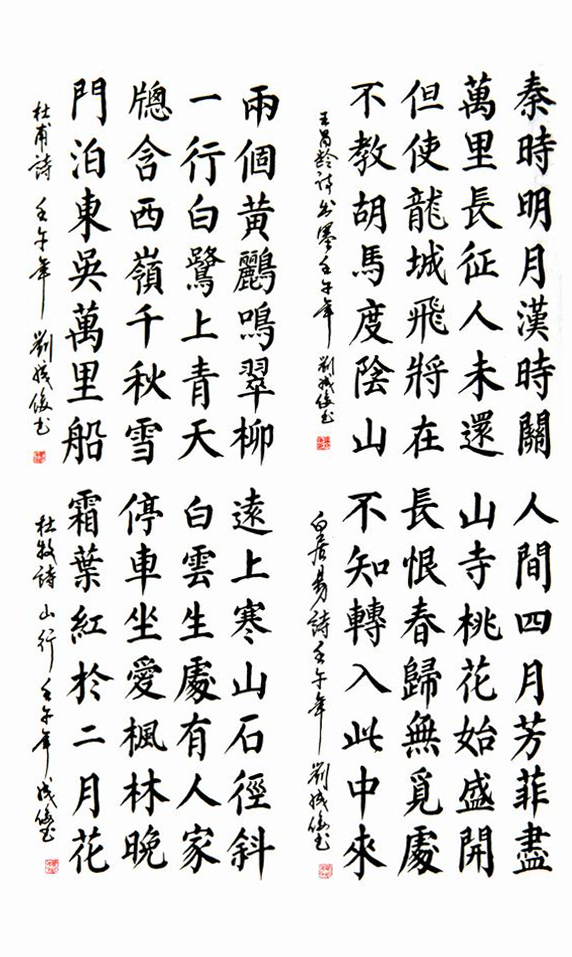 秦時明月漢時關
萬里長征人未還
但使龍城飛將在
不教胡馬度陰山
王昌齡詩出塞壬午年 劉成俊书
兩個黃鸝鳴翠柳
一行白鷺上青天
牕含西嶺千秋雪
門泊東吳萬里船
杜甫詩 壬午年 劉成俊书
人間四月芳菲盡
山寺桃花始盛開
長恨春歸無覓處
不知轉入此中來
白居易詩壬午年 劉成俊书
遠上寒山石徑斜
白雲生處有人家
停車坐愛楓林晚
霜葉紅於二月花
杜牧詩 山行 壬午年 成俊书